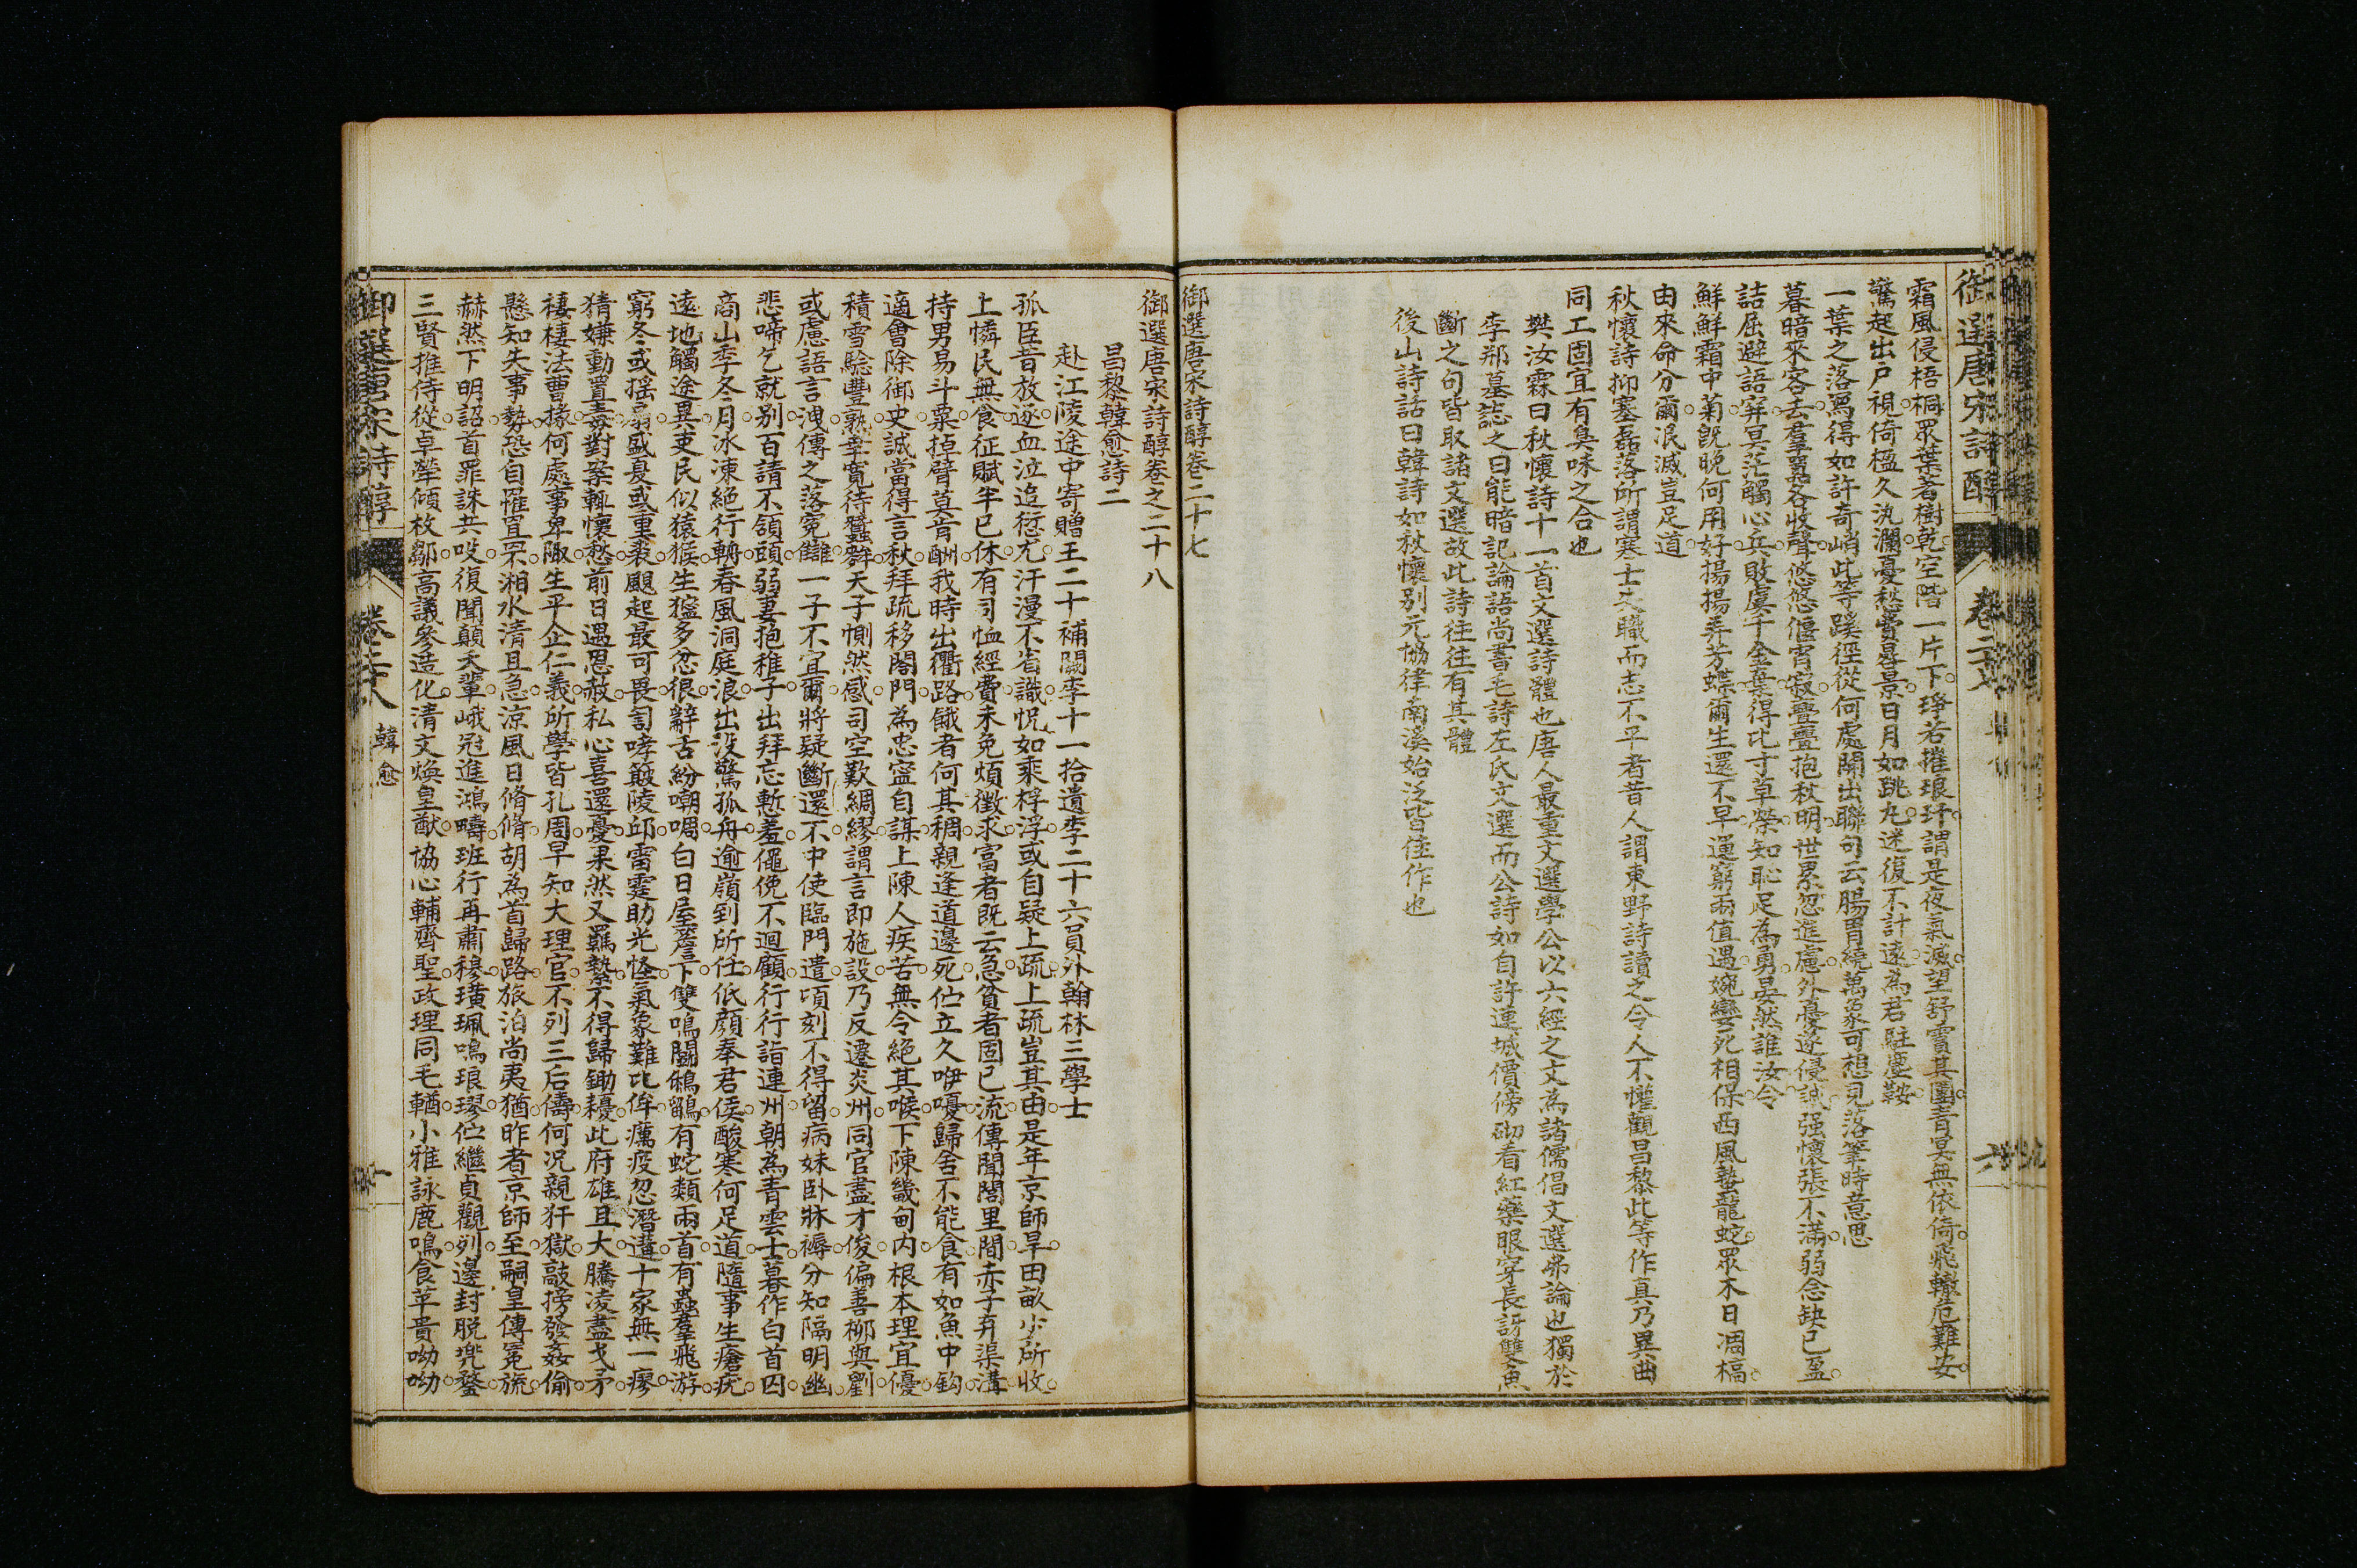 御選唐宋詩醇 卷二十七 六
霜風侵梧桐眾葉著樹乾空階一片下琤若摧琅玕謂是夜氣滅望舒霣其團青冥無依倚飛轍危難安
驚起出戶視倚楹久汍瀾憂愁費晷景日月如跳丸迷復不計遠為君駐塵鞍
一葉之落寫得如許奇峭此等蹊徑從何處開出聯句云腸胃繞萬象可想見落筆時意思
暮暗來客去羣囂各收聲悠悠偃宵寂亹亹抱秋明世累忽進慮外憂遂侵誠强懷張不滿弱念缺已盈
詰屈避語穽冥茫觸心兵敗虞千金棄得比寸草榮知恥足為勇晏然誰汝令
鮮鮮霜中菊旣晚何用好揚揚弄芳蝶爾生還不早運窮兩值遇婉孌死相保西風蟄龍蛇眾木日凋槁
由來命分爾泯滅豈足道
秋懷詩抑塞磊落所謂寒士失職而志不平者昔人謂東野詩讀之令人不懽觀昌黎此等作真乃異曲
同工固宜有臭味之合也
樊汝霖曰秋懷詩十一首文選詩體也唐人最重文選學公以六經之文為諸儒倡文選弗論也獨於
李郱墓誌之曰能暗記論語尚書毛詩左氏文選而公詩如自許連城價傍砌看紅藥眼穿長訝雙魚
斷之句皆取諸文選故此詩往往有其體
後山詩話曰韓詩如秋懷别元協律南溪始泛皆佳作也
御選唐宋詩醇卷二十七
御選唐宋詩醇卷之二十八
昌黎韓愈詩二
赴江陵途中寄贈王二十補闕李十一拾遺李二十六員外翰林三學士
孤臣昔放逐血泣追愆尤汗漫不省識怳如乘桴浮或自疑上疏上疏豈其由是年京師旱田畝少所收
上憐民無食征賦半已休有司恤經費未免煩徵求富者旣云急貧者固已流傳聞閭里間赤子弃渠溝
持男易斗粟掉臂莫肯酬我時出衢路餓者何其稠親逢道邊死佇立久咿嚘歸舍不能食有如魚中鈎
適會除御史誠當得言秋拜疏移閤門為忠寧自謀上陳人疾苦無令絕其喉下陳畿甸内根本理宜優
積雪驗豐熟幸寬待蠶麰天子惻然感司空歎綢繆謂言即施設乃反遷炎州同官盡才俊偏善柳與劉
或慮語言洩傳之落寃讎二子不宜爾將疑斷還不中使臨門遣頃刻不得留病妹卧牀褥分知隔明幽
悲啼乞就别百請不頷頭弱妻抱稚子出拜忘慙羞僶俛不迴顧行行詣連州朝為青雲士暮作白首囚
商山季冬月冰凍絕行輈春風洞庭浪出沒驚孤舟逾嶺到所任低顏奉君侯酸寒何足道隨事生瘡疣
遠地觸途異吏民似猿猴生獰多忿很辭舌紛嘲啁白日屋簷下雙鳴鬬鵂鶹有蛇類兩首有蟲羣飛游
窮冬或搖扇盛夏或重裘颶起最可畏訇哮簸陵邱雷霆助光怪氣象難比侔癘疫忽潛遘十家無一瘳
猜嫌動置毒對案輒懷愁前日遇恩赦私心喜還憂果然又羈縶不得歸鋤耰此府雄且大騰凌盡戈矛
棲棲法曹掾何處事卑陬生平企仁義所學皆孔周早知大理官不列三后儔何況親犴獄敲搒發姦偷
懸知失事勢恐自罹罝罘湘水清且急涼風日脩脩胡為首歸路旅泊尚夷猶昨者京師至嗣皇傳冕旒
赫然下明詔首罪誅共吺復聞顛夭輩峨冠進鴻疇班行再肅穆璜珮鳴琅璆佇繼貞觀列邊封脫兜鍪
三賢推侍從卓犖傾枚鄒高議參造化清文煥皇猷協心輔齊聖政理同毛輶小雅詠鹿鳴食苹貴呦呦
御選唐宋詩醇 卷二十八 韓愈 一